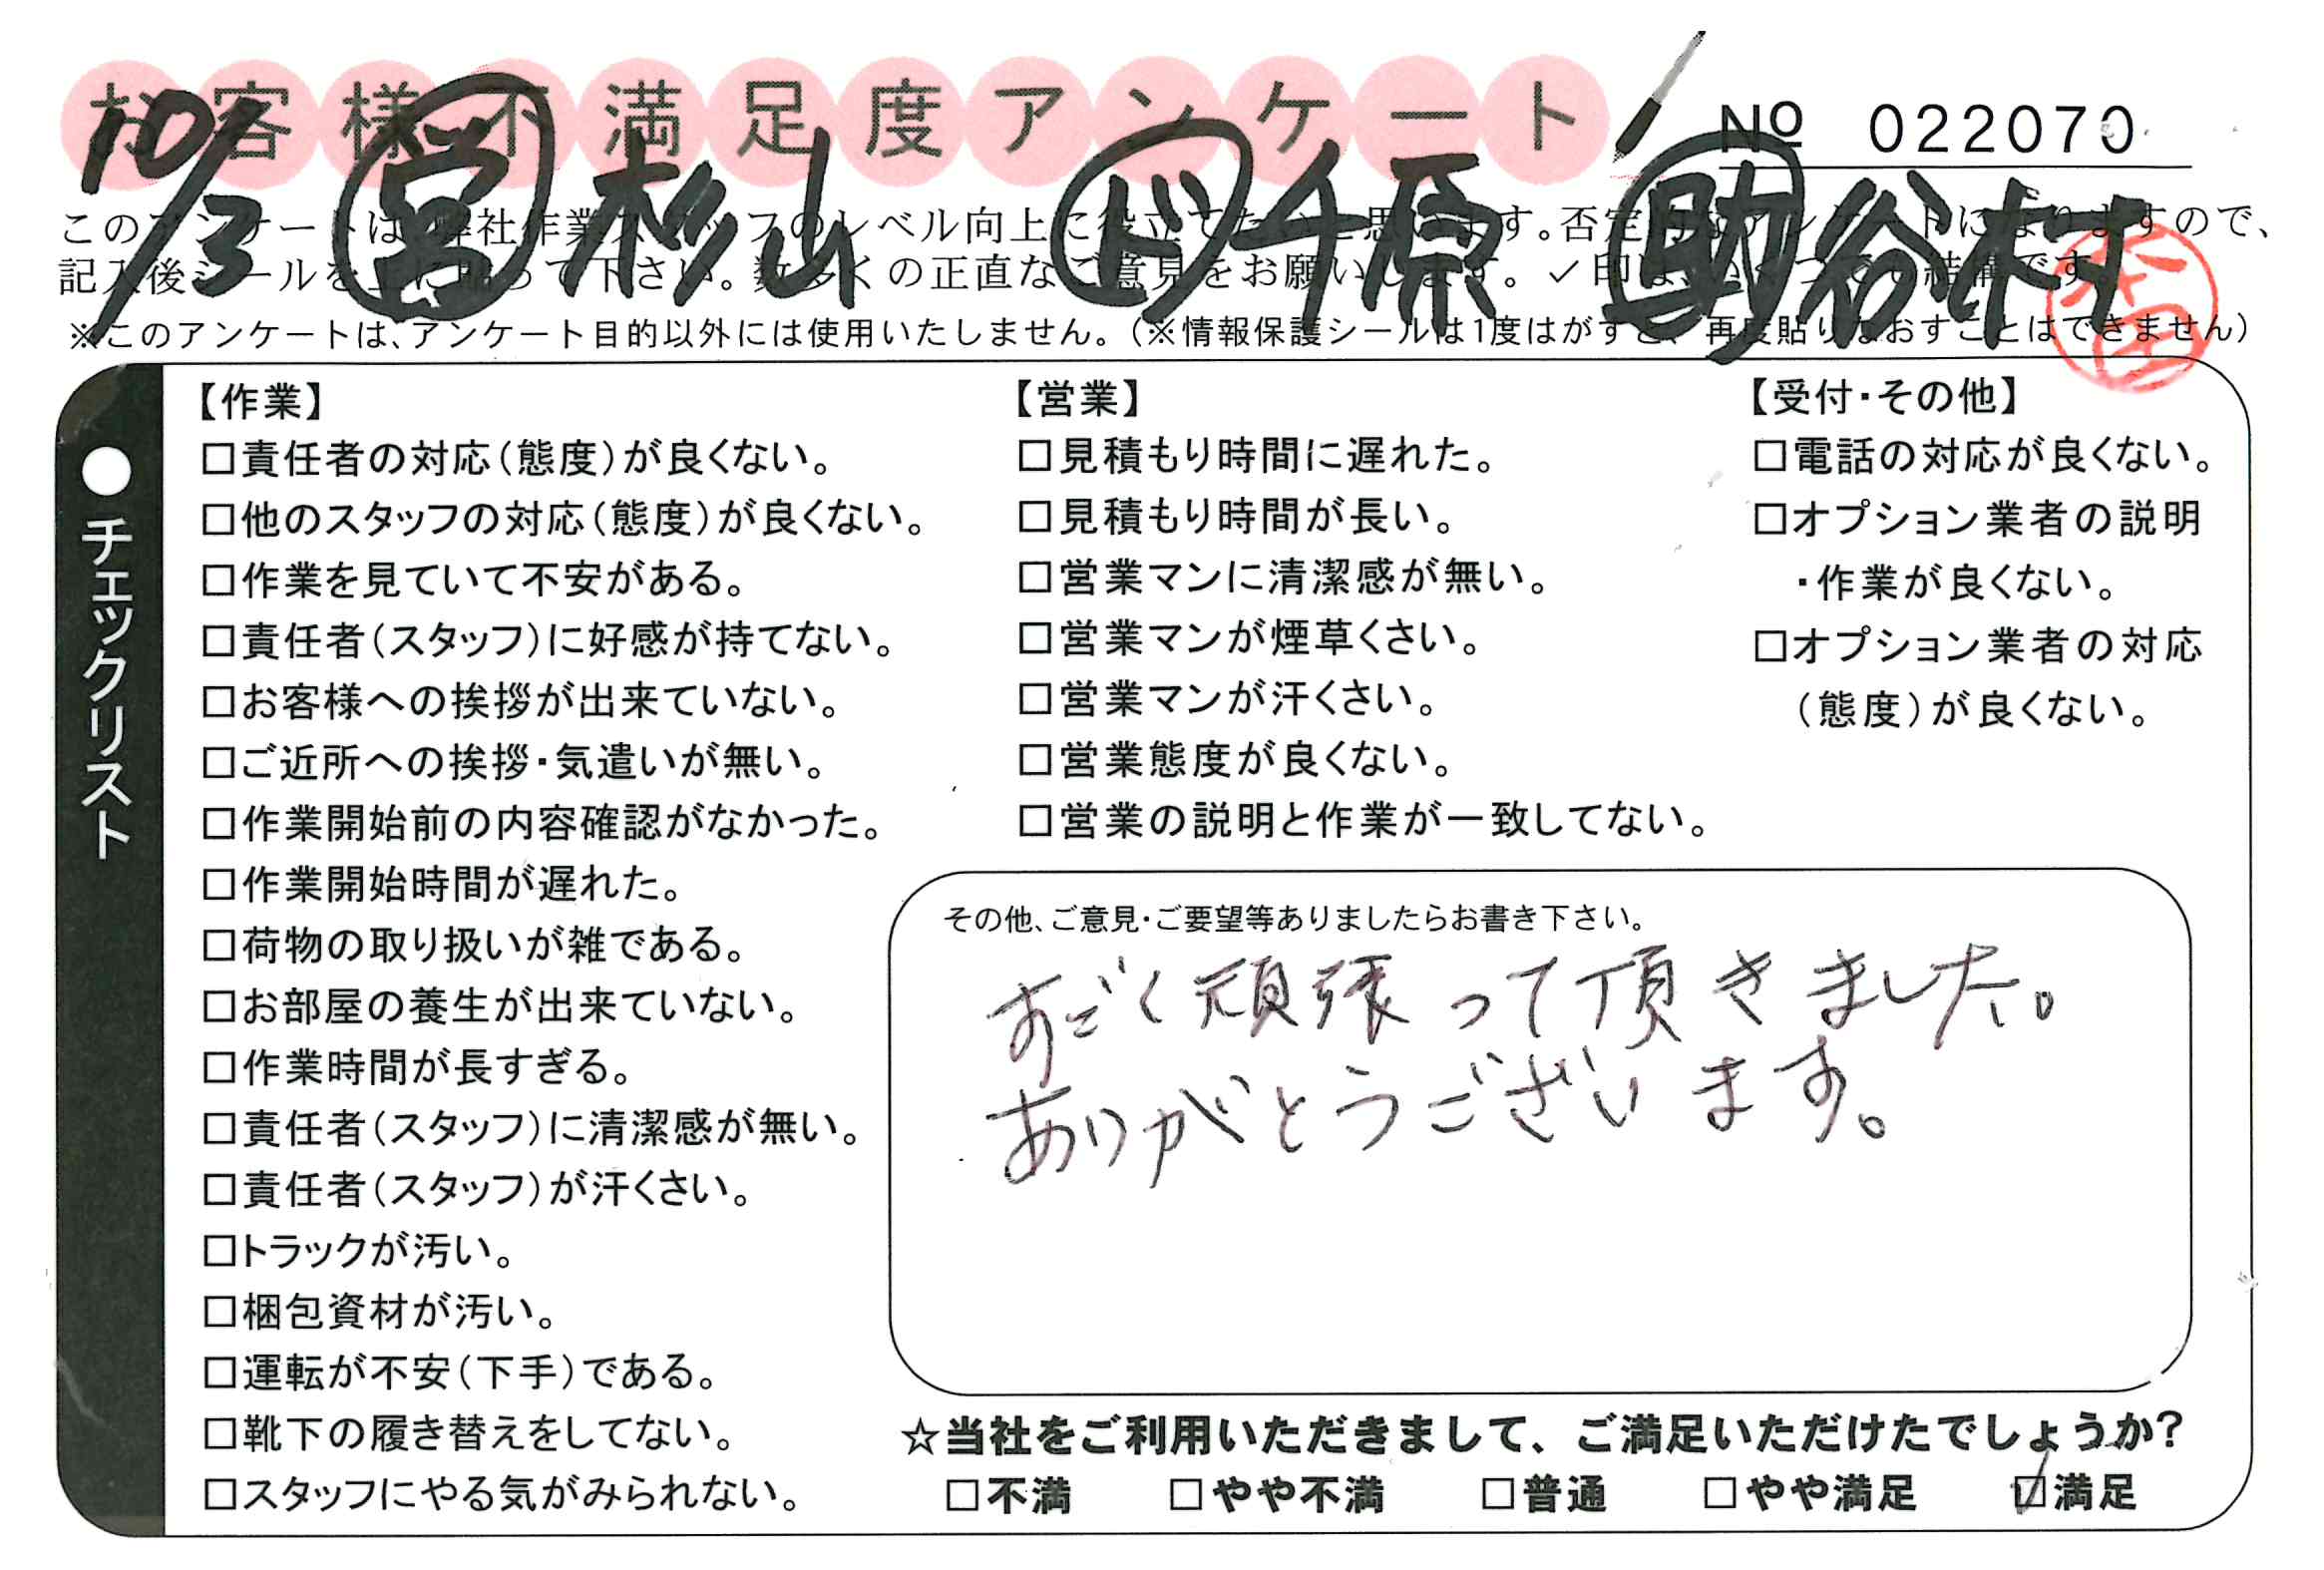 お客様不満足度アンケート
Nº 022070
10/3 営 杉山 ド 千原 助 谷村
このアンケートは、弊社作業スタッフのレベル向上に役立てたいと思います。否定的なアンケートになりますので、
記入後シールを上に貼って下さい。数多くの正直なご意見をお願いします。✓印は、いくつでも結構です。
※このアンケートは、アンケート目的以外には使用いたしません。(※情報保護シールは1度はがすと、再度貼りなおすことはできません)
本田
●チェックリスト
【作業】
□責任者の対応(態度)が良くない。
□他のスタッフの対応(態度)が良くない。
□作業を見ていて不安がある。
□責任者(スタッフ)に好感が持てない。
□お客様への挨拶が出来ていない。
□ご近所への挨拶・気遣いが無い。
□作業開始前の内容確認がなかった。
□作業開始時間が遅れた。
□荷物の取り扱いが雑である。
□お部屋の養生が出来ていない。
□作業時間が長すぎる。
□責任者(スタッフ)に清潔感が無い。
□責任者(スタッフ)が汗くさい。
□トラックが汚い。
□梱包資材が汚い。
□運転が不安(下手)である。
□靴下の履き替えをしてない。
□スタッフにやる気がみられない。
【営業】
□見積もり時間に遅れた。
□見積もり時間が長い。
□営業マンに清潔感が無い。
□営業マンが煙草くさい。
□営業マンが汗くさい。
□営業態度が良くない。
□営業の説明と作業が一致してない。
【受付・その他】
□電話の対応が良くない。
□オプション業者の説明
・作業が良くない。
□オプション業者の対応
(態度)が良くない。
その他、ご意見・ご要望等ありましたらお書き下さい。
すごく頑張って頂きました。
ありがとうございます。
☆当社をご利用いただきまして、ご満足いただけたでしょうか?
□不満 □やや不満 □普通 □やや満足 ☑満足